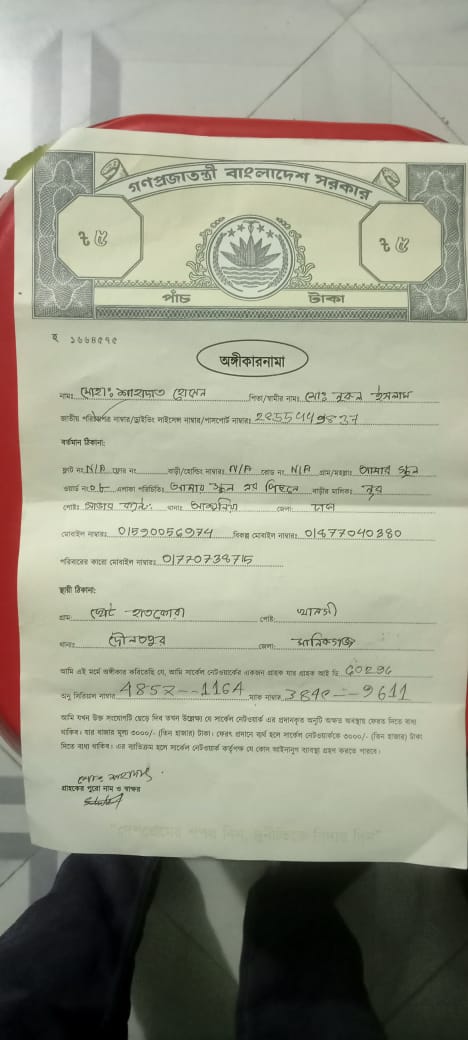 গণপ্রজাতন্ত্রী বাংলাদেশ সরকার
৳ ৫ ৳ ৫
পাঁচ টাকা
হ ১৬৬৪৫৭৫
অঙ্গীকারনামা
নামঃ মোহাঃ শাহাদাত হোসেন পিতা/স্বামীর নামঃ মোঃ নুরুল ইসলাম
জাতীয় পরিচয়পত্র নাম্বার/ড্রাইভিং লাইসেন্স নাম্বার/পাসপোর্ট নাম্বারঃ
বর্তমান ঠিকানা:
ফ্লাট নংঃ N/A ফ্লোর নং বাড়ী/হোল্ডিং নাম্বারঃ N/A রোড নং N/A গ্রাম/মহল্লাঃ আমার স্কুল
ওয়ার্ড নংঃ ০৮ এলাকা পরিচিতিঃ আমার স্কুল এর পিছনে বাড়ীর মালিকঃ নুর
পোষ্টঃ থানাঃ আশুলিয়া জেলাঃ ঢাকা
মোবাইল নাম্বারঃ 01590056974 বিকল্প মোবাইল নাম্বারঃ 01877040380
পরিবারের কারো মোবাইল নাম্বারঃ 01770738715
স্থায়ী ঠিকানা:
গ্রামঃ ছোট পোষ্টঃ
থানাঃ দৌলতপুর জেলাঃ মানিকগঞ্জ
আমি এই মর্মে অঙ্গীকার করিতেছি যে, আমি সার্কেল নেটওয়ার্কের একজন গ্রাহক যার গ্রাহক আই ডি
অনু সিরিয়াল নাম্বার 485২--1164 ম্যাক নাম্বার
আমি যখন উক্ত সংযোগটি ছেড়ে দিব তখন উল্লেখ্য যে সার্কেল নেটওয়ার্ক এর প্রদানকৃত অনুটি অক্ষত অবস্থায় ফেরত দিতে বাধ্য
থাকিব। যার বাজার মূল্য ৩০০০/- (তিন হাজার) টাকা। ফেরৎ প্রদানে ব্যর্থ হলে সার্কেল নেটওয়ার্ককে ৩০০০/- (তিন হাজার) টাকা
দিতে বাধ্য থাকিব। এর ব্যতিক্রম হলে সার্কেল নেটওয়ার্ক কর্তৃপক্ষ যে কোন আইনানুগ ব্যবস্থা গ্রহণ করতে পারবে।
মোঃ শাহাদাৎ
গ্রাহকের পুরো নাম ও স্বাক্ষর